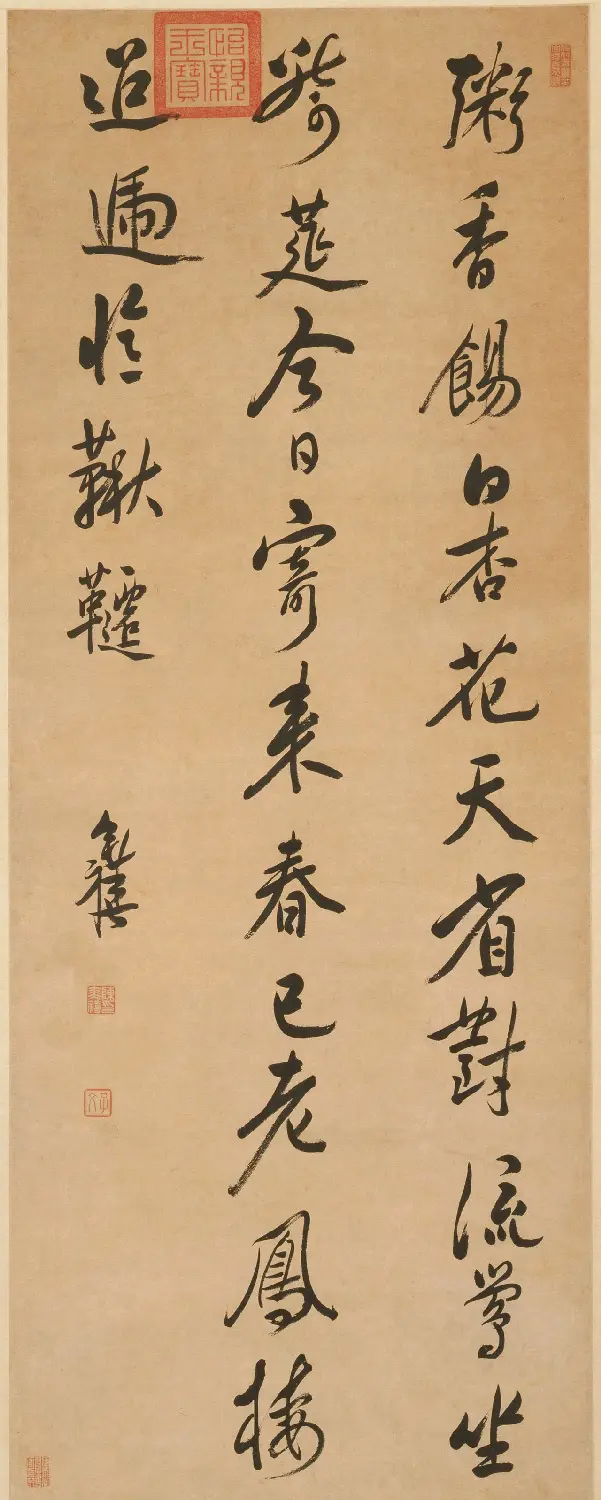 粥香餳白杏花天省對流鶯坐
綺筵今日寄來春已老鳳樓
迢遞憶鞦韆
怡親王寶